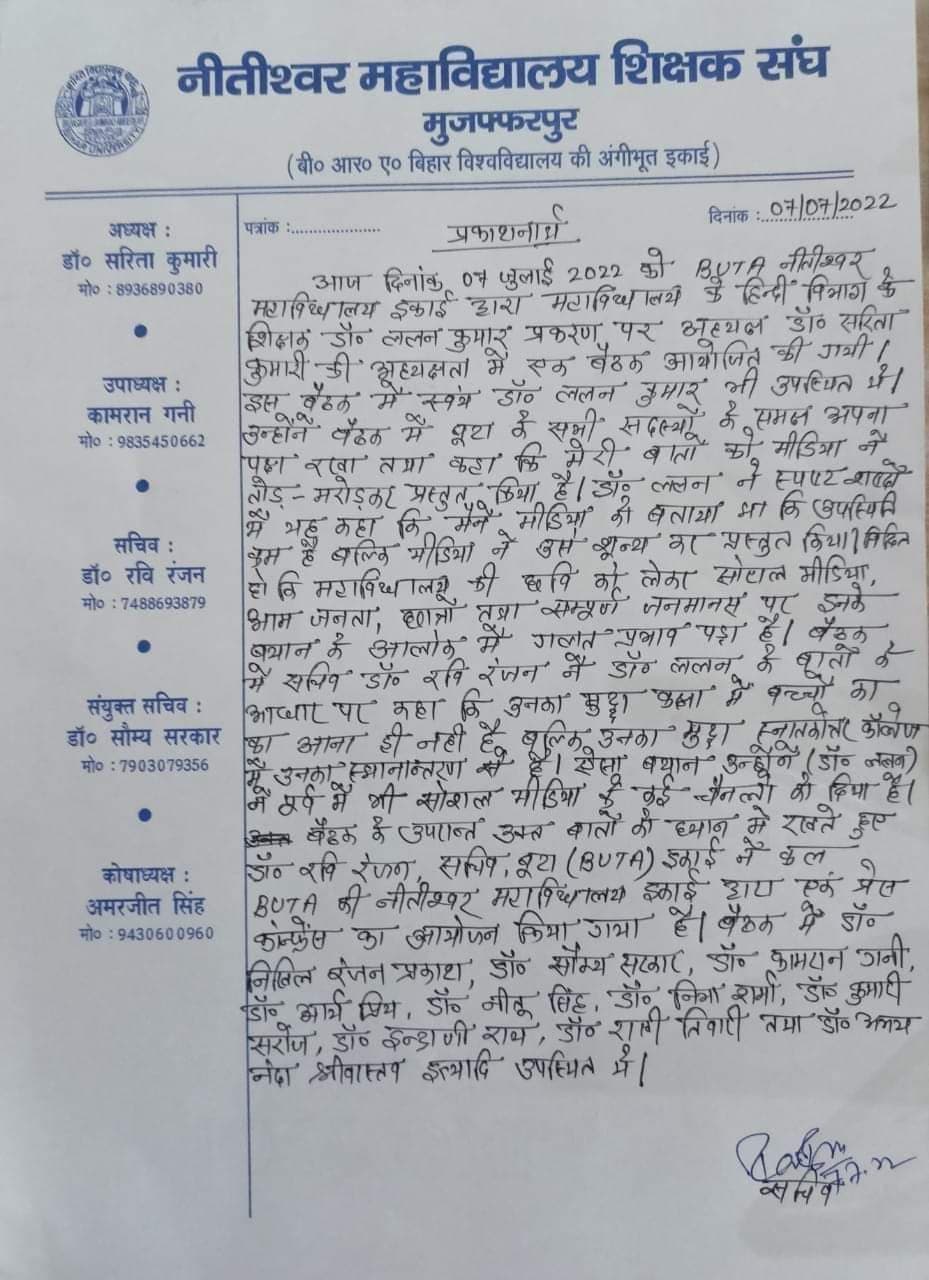 नीतीश्वर महाविद्यालय शिक्षक संघ
मुजफ्फरपुर
(बी० आर० ए० बिहार विश्वविद्यालय की अंगीभूत इकाई)
अध्यक्ष :
डॉ० सरिता कुमारी
मो० : 8936890380
उपाध्यक्ष :
कामरान गनी
मो० : 9835450662
सचिव :
डॉ० रवि रंजन
मो० : 7488693879
संयुक्त सचिव :
डॉ० सौम्य सरकार
मो० : 7903079356
कोषाध्यक्ष :
अमरजीत सिंह
मो० : 9430600960
पत्रांक :....................
दिनांक :..07/07/2022
प्रकाशनार्थ
आज दिनांक 07 जुलाई 2022 को BUTA नीतीश्वर
महाविद्यालय इकाई द्वारा महाविद्यालय के हिन्दी विभाग के
शिक्षक डॉ० ललन कुमार प्रकरण पर अध्यक्ष डॉ० सरिता
कुमारी की अध्यक्षता में एक बैठक आयोजित की गयी।
इस बैठक में स्वयं डॉ० ललन कुमार भी उपस्थित थे।
उन्होंने बैठक में बूटा के सभी सदस्यों के समक्ष अपना
पक्ष रखा तथा कहा कि मेरी बातों को मीडिया ने
तोड़-मरोड़कर प्रस्तुत किया है। डॉ० ललन ने स्पष्ट शब्दों
में यह कहा कि मैंने मीडिया को बताया था कि उपस्थिति
कम है बल्कि मीडिया ने उसे शून्य कर प्रस्तुत किया। विदित
हो कि महाविद्यालय की छवि को लेकर सोशल मीडिया,
आम जनता, छात्रों तथा सम्पूर्ण जनमानस पर इनके
बयान के आलोक में गलत प्रभाव पड़ा है। बैठक
में सचिव डॉ० रवि रंजन ने डॉ० ललन के बातों के
आधार पर कहा कि उनका मुद्दा कक्षा में बच्चों का
का आना ही नहीं है बल्कि उनका मुद्दा स्नातकोत्तर कॉलेज
में उनका स्थानान्तरण से है। ऐसा बयान उन्होंने (डॉ० ललन)
ने पूर्व में भी सोशल मीडिया के कई चैनलों को दिया है।
बैठक के उपरान्त उक्त बातों को ध्यान में रखते हुए
डॉ० रवि रंजन, सचिव, बूटा (BUTA) इकाई ने कल
BUTA की नीतीश्वर महाविद्यालय इकाई द्वारा एक प्रेस
कांफ्रेंस का आयोजन किया गया है। बैठक में डॉ०
निखिल रंजन प्रकाश, डॉ० सौम्य सरकार, डॉ० कामरान गनी,
डॉ० आर्य प्रिय, डॉ० नीतू सिंह, डॉ० निभा शर्मा, डॉ० कुमारी
सरोज, डॉ० इन्द्राणी राय, डॉ० रागी तिवारी तथा डॉ०
नंदा श्रीवास्तव इत्यादि उपस्थित थे।
सचिव